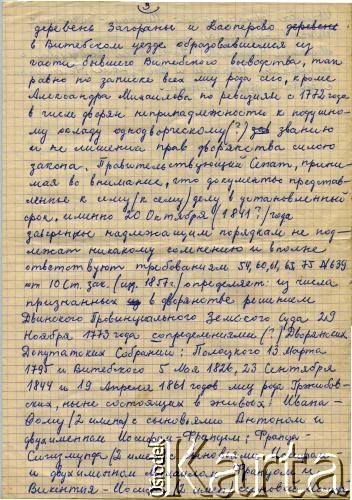 3
деревень Загораны и Касперово деревень
в Витебском уезде образовавшемся из
части бывшего Витебского воеводства, так
равно по записке всех лиц рода сего, кроме
Александра Михайлова по ревизиям с 1772 года
в числе дворян непринадлежности к подушно
му окладу однодворческому (?) званию
и не лишении прав дворянства силою
закона. Правительствующий Сенат, прини-
мая во внимание, что документы представ-
ленные к сему /к сему/ делу в установленный
срок, именно 20 Октября /1841?/ года
заверены надлежащим порядком не под-
лежат никакому сомнению и вполне
ответствуют требованиям 54, 60, 61, 65 75 и 639
от 10 Ст. зак. (изд. 1857г.) определяет: из числа
признанных в дворянстве решением
Двинского Провинциального Земского Суда 29
Ноября 1773 года сопределениями (?) Дворянских
Депутатских Собраний: Полоцкого 13 Марта
1795 и Витебского 5 Мая 1826, 23 Сентября
1844 и 19 Апреля 1861 годов лиц рода Гржибов-
ских, ныне состоящих в живых: Ивана-
Фому /2 имена/ с сыновьями Антоном и
двухименным Иосифом Францом; Франца-
Сигизмунда /2 имена/ с сыновьями
и двухименном Францом и
Викентия-
Ośrodek
Karta